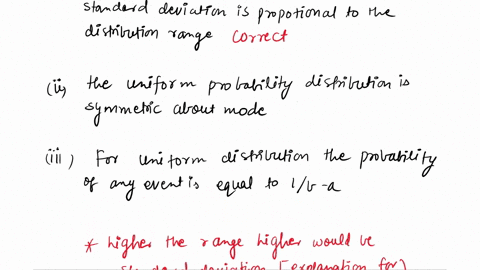 standard deviation is propotional to the
distribution range correct
(ii) the uniform probability distribution is
symmetric about mode
(iii) For uniform distribution the probability
of any event is equal to 1/b-a
* higher the range higher would be
standard deviation [explanation for)